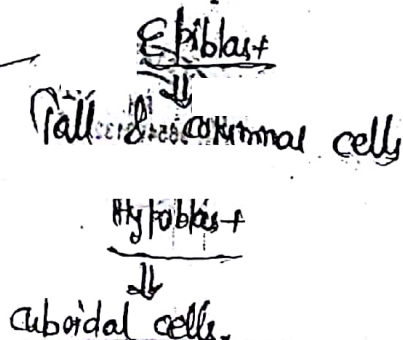 Epiblast
⇓
Tall & columnal cells
Hypoblast
⇓
cuboidal cells.